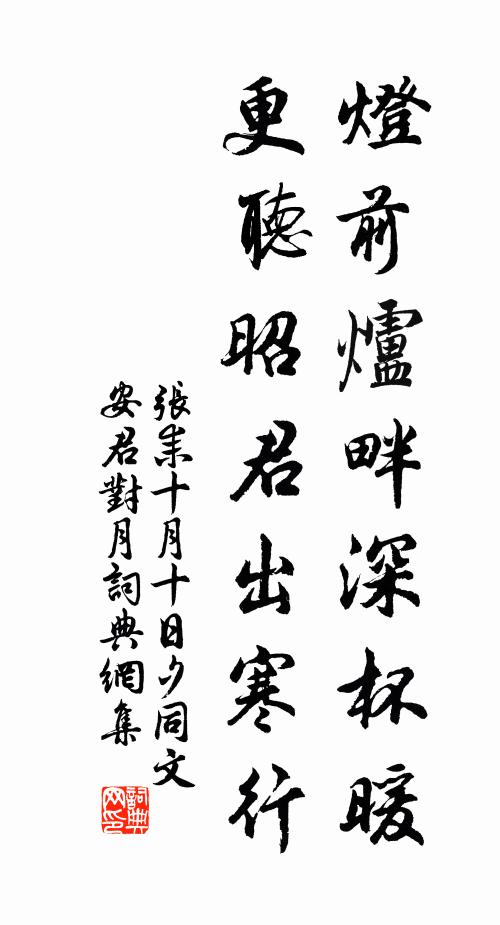 燈前爐畔深杯暖
更聽昭君出寒行
張耒十月十日夕同文
安君對月詞典網集
詞典網印